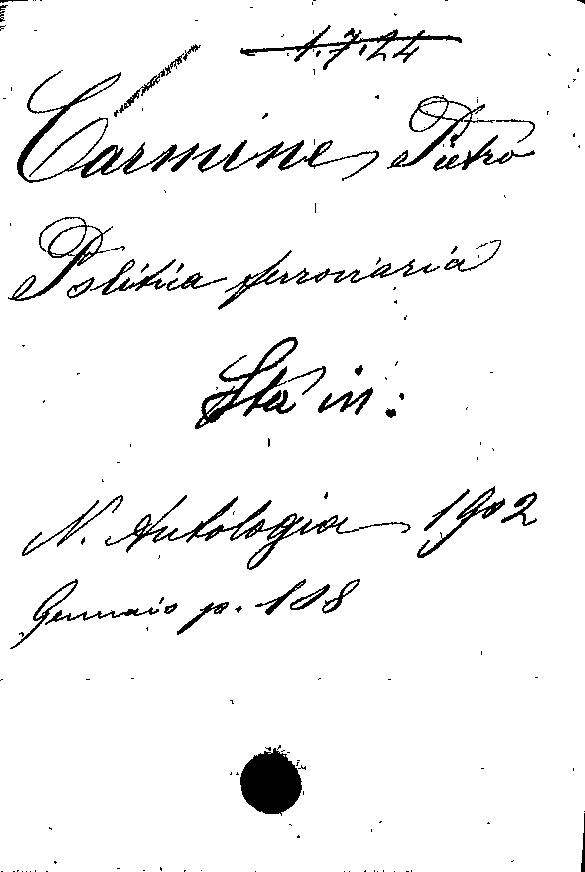 1.7.24
Carmine, Pietro
Politica ferroviaria
Sta in:
N. Antologia, 1902
Gennaio p. 188